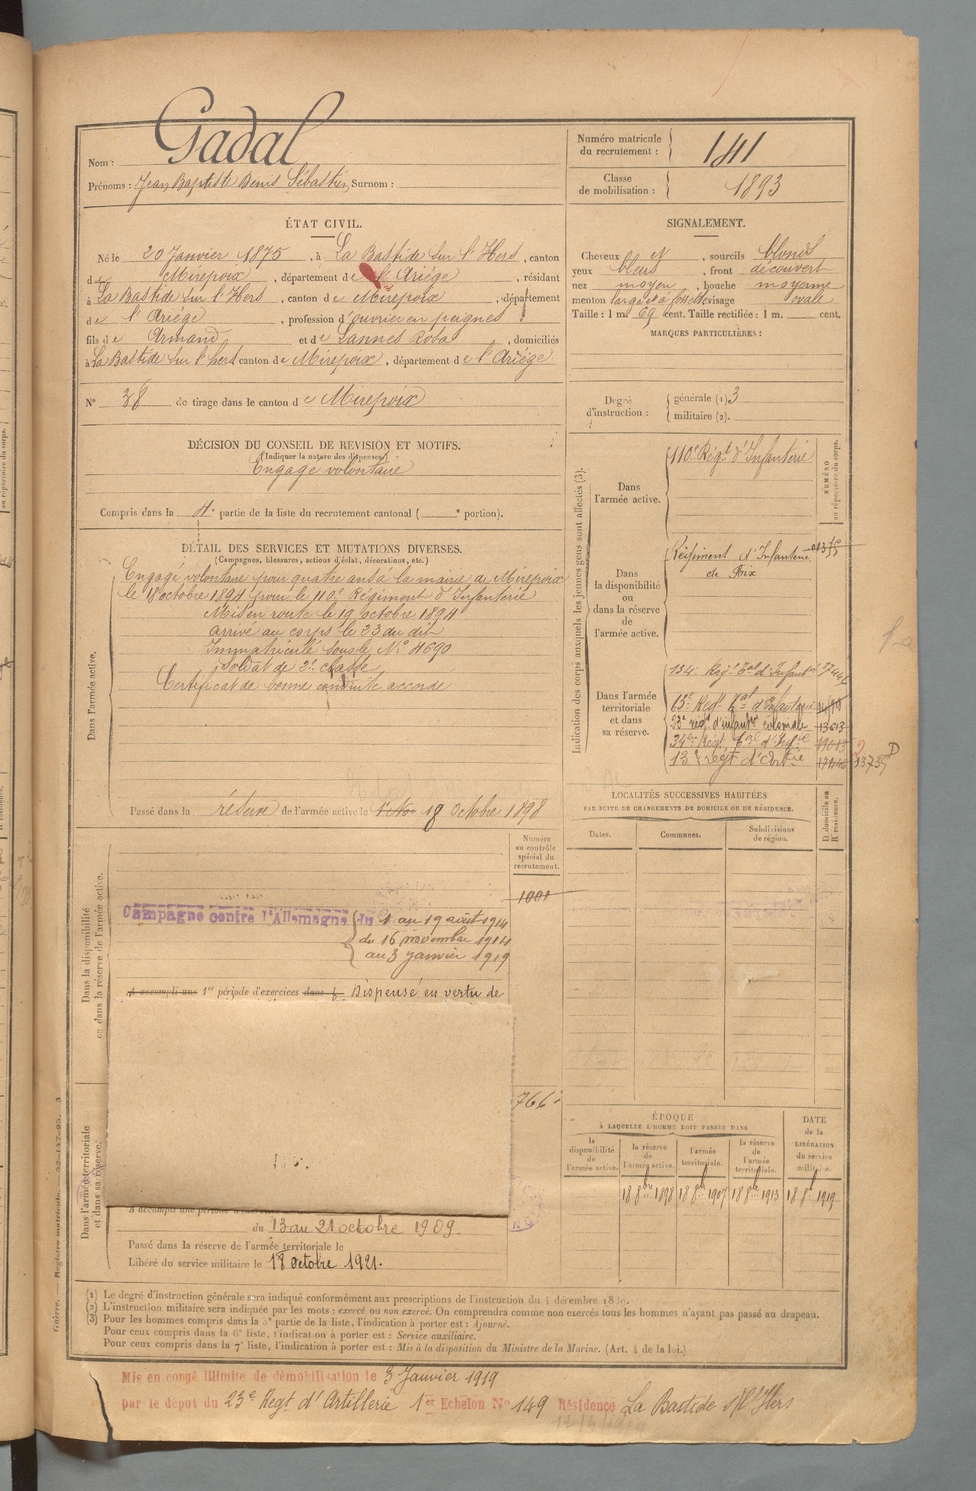 Nom : Gadal
Prénoms : Jean Baptiste Denis Sébastien, Surnom :
Numéro matricule du recrutement : 141
Classe de mobilisation : 1893
ÉTAT CIVIL.
Né le 20 Janvier 1875, à La Bastide sur l'Hers, canton
de Mirepoix, département de l'Ariège, résidant
à La Bastide sur l'Hers, canton de Mirepoix, département
de l'Ariège, profession d'ouvrier en peignes
fils de Armand et de Lannes Rosa, domiciliés
à La Bastide sur l'hers canton de Mirepoix, département de l'Ariège.
N° 38 de tirage dans le canton de Mirepoix
SIGNALEMENT.
Cheveux et, sourcils blonds
yeux bleus, front découvert
nez moyen, bouche moyenne
menton large à visage ovale
Taille : 1 m. 69 cent. Taille rectifiée : 1 m. cent.
MARQUES PARTICULIÈRES :
Degré d'instruction : générale (1). 3
militaire (2).
DÉCISION DU CONSEIL DE REVISION ET MOTIFS.
(Indiquer la nature des dispenses.)
Engagé volontaire
Compris dans la 4e partie de la liste du recrutement cantonal ( e portion).
DÉTAIL DES SERVICES ET MUTATIONS DIVERSES.
(Campagnes, blessures, actions d'éclat, décorations, etc.)
Dans l'armée active.
Engagé volontaire pour quatre ans à la mairie de Mirepoix
le 18 octobre 1894 pour le 110e Régiment d'Infanterie
Mis en route le 19 octobre 1894
arrivé au corps le 23 du dit
Immatriculé sous le N° 4690
Soldat de 2e classe
Certificat de bonne conduite accordé
Passé dans la réserve de l'armée active le 18 Octobre 1898
Indication des corps auxquels les jeunes gens sont affectés (3).
NUMÉRO au répertoire du corps.
Dans l'armée active.
110e Régt d'Infanterie
Dans la disponibilité ou dans la réserve de l'armée active.
Régiment d'Infanterie
de Foix
Dans l'armée territoriale et dans sa réserve.
134e Regt Tal d'Infant
65e Regt d'Infanterie
22e régt d'infantrie coloniale 13613
34e Régt Tal d'Infie
13e régt d'Artie
D
LOCALITÉS SUCCESSIVES HABITÉES
PAR SUITE DE CHANGEMENTS DE DOMICILE OU DE RÉSIDENCE.
Dates.
Communes.
Subdivisions de région.
D domicile ou R résidence.
Numéro au contrôle spécial du recrutement.
1001
Dans la disponibilité ou dans la réserve de l'armée active.
Campagne contre l'Allemagne du 1 au 19 août 1914
du 16 novembre 1914
au 3 janvier 1919
A accompli une 1re période d'exercices dans le Dispensé en vertu de
766
Dans l'armée territoriale et dans sa réserve.
A accompli une période d'
du 13 au 21 octobre 1909.
Passé dans la réserve de l'armée territoriale le
Libéré du service militaire le 18 octobre 1921.
ÉPOQUE
À LAQUELLE L'HOMME DOIT PASSER DANS
la disponibilité de l'armée active.
la réserve de l'armée active.
l'armée territoriale.
la réserve de l'armée territoriale.
DATE de la LIBÉRATION du service militaire.
18 8bre 1898
18 8bre 1907
18 8bre 1913
18 8bre 1919
Guerre. — Registre matricule.
(1) Le degré d'instruction générale sera indiqué conformément aux prescriptions de l'instruction du 4 décembre 1889.
(2) L'instruction militaire sera indiquée par les mots : exercé ou non exercé. On comprendra comme non exercés tous les hommes n'ayant pas passé au drapeau.
(3) Pour les hommes compris dans la 5e partie de la liste, l'indication à porter est : Ajourné.
Pour ceux compris dans la 6e liste, l'indication à porter est : Service auxiliaire.
Pour ceux compris dans la 7e liste, l'indication à porter est : Mis à la disposition du Ministre de la Marine. (Art. 4 de la loi.)
Mis en congé illimité de démobilisation le 3 Janvier 1919
par le dépot du 23e Régt d'Artillerie 1er Echelon N° 149 Résidence La Bastide s/ l'Hers